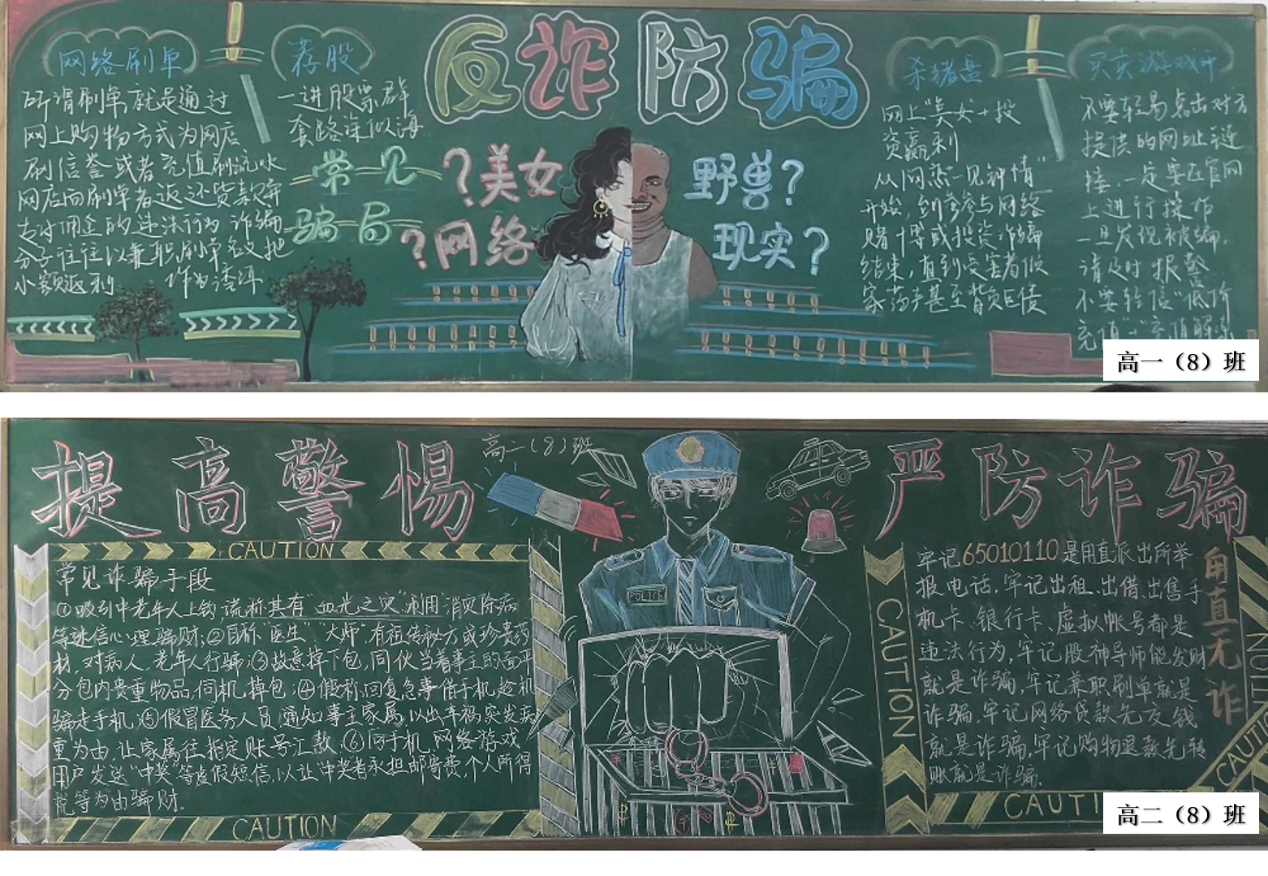 反诈防骗
网络刷单
所谓刷单就是通过
网上购物方式为网店
刷信誉或者充值刷流水
网店向刷单者返还货款并
支付佣金的违法行为 诈骗
分子往往以兼职刷单名义把
小额返利 作为诱洱
荐股
一进股票群
套路深似海
常见
骗局
?美女
?网络
野兽?
现实?
杀猪盘
网上"美女"+投
资赢利
从网恋"一见钟情"
开始,到参与网络
赌博或投资诈骗
结束,直到受害者倾
家荡产甚至背负巨债
买卖游戏币
不要轻易点击对方
提供的网址链
接.一定要在官网
上进行操作
一旦发现被骗
请及时报警
不要轻信"低价
充值"
高一(8)班
提高警惕
高二(8)班
严防诈骗
CAUTION
常见诈骗手段
①吸引中老年人上钩,谎称其有"血光之灾"利用"消灾除病"
等迷信心理骗财;②自称"医生"、"大师"有祖传秘方或珍贵药
材,对病人、老年人行骗;③故意掉下包,同伙当着事主的面平
分包内贵重物品,伺机掉包;④假称回复急事借手机趁机
骗走手机;⑤假冒医务人员,通知事主家属,以出车祸突发病
重为由,让家属往指定账号汇款;⑥向手机、网络游戏
用户发送"中奖"等虚假短信,以让"中奖者承担邮寄费,个人所得
税等为由骗财.
CAUTION
POLICE
CAUTION
牢记65010110是甪直派出所举
报电话,牢记出租、出借、出售手
机卡、银行卡、虚拟帐号都是
违法行为,牢记股神导师能发财
就是诈骗,牢记兼职刷单就是
诈骗,牢记网络贷款先交钱
就是诈骗,牢记购物退款先转
账就是诈骗.
甪直无诈
CAUTI
高二(8)班